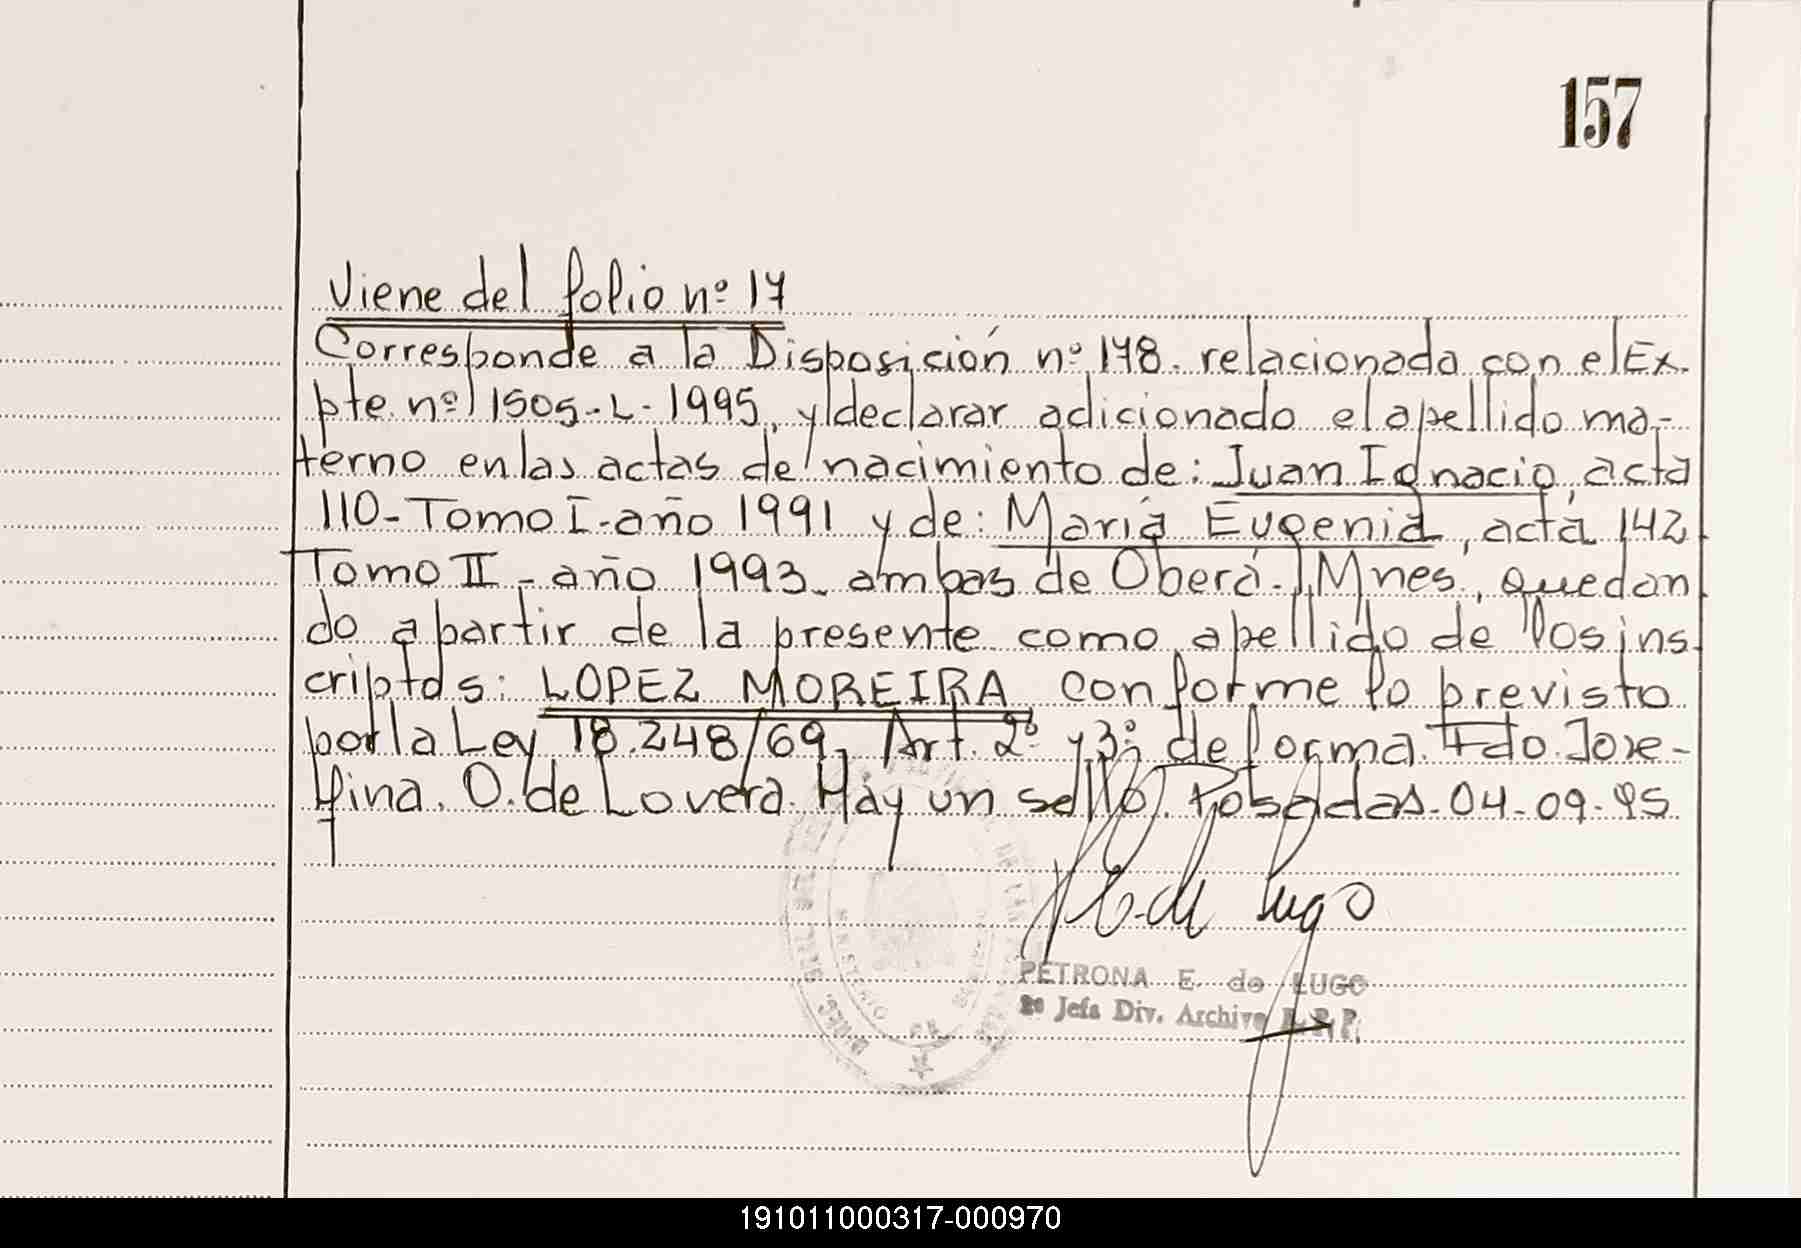 157
Viene del folio nº 17
Corresponde a la Disposición nº 178. relacionada con el Ex.
pte. nº 1505-L-1995, y declarar adicionado el apellido ma-
terno en las actas de nacimiento de: Juan Ignacio, acta
110-Tomo I-año 1991 y de: María Eugenia, acta 142
Tomo II-año 1993. ambas de Oberá-Mnes, quedan
do a partir de la presente como apellido de los ins
criptos: LOPEZ MOREIRA conforme lo previsto
por la Ley 18.248/69, Art. 2º y 3º de forma. Fdo. Jose-
fina. O. de Lovera. Hay un sello. Posadas-04-09-95
E. de Lugo
PETRONA E. de LUGO
Jefa Div. Archivo
191011000317-000970